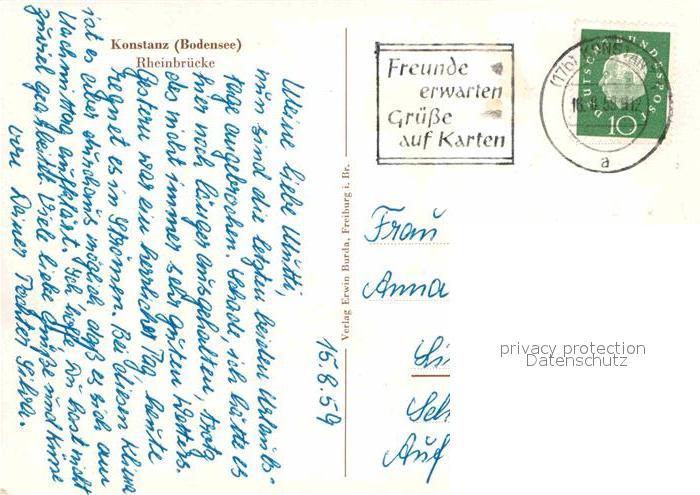 Konstanz (Bodensee)
Rheinbrücke
15.8.59
Meine liebe Mutti,
nun sind die letzten beiden Urlaubs-
tage angebrochen. Schade, ich hätte es
hier noch länger ausgehalten, trotz
des nicht immer sehr guten Wetters.
Gestern war ein herrlicher Tag, heute
regnet es in Strömen. Bei diesem Klima
ist es aber durchaus möglich, daß es sich am
Nachmittag aufklärt. Ich hoffe Du hast nicht
zuviel gearbeitet. Viele liebe Grüße und Küsse
von Deiner Tochter
Verlag Erwin Burda, Freiburg i. Br.
Freunde
erwarten
Grüße
auf Karten
(17b) KONSTANZ
a
DEUTSCHE BUNDESPOST
10
Frau
Anna
privacy protection
Datenschutz